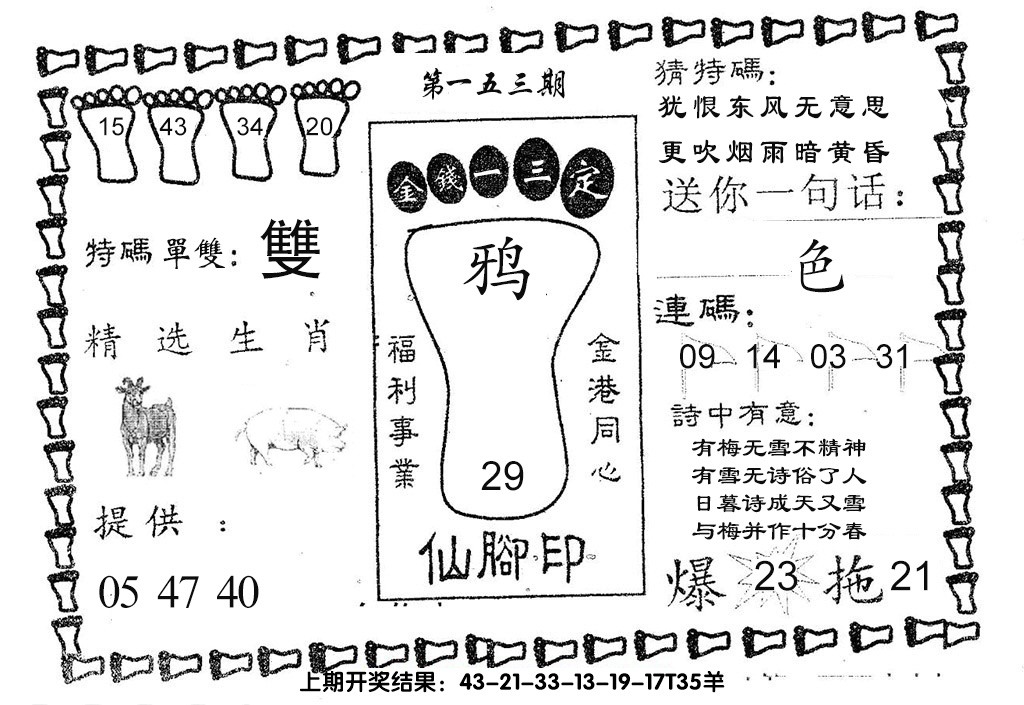 第一五三期
15 43 34 20
特碼單雙：雙
精选生肖
提供：
05 47 40
金錢一三定
鸦
福利事業
金港同心
29
仙腳印
猜特碼：
犹恨东风无意思
更吹烟雨暗黄昏
送你一句话：
色
連碼：
09 14 03 31
詩中有意：
有梅无雪不精神
有雪无诗俗了人
日暮诗成天又雪
与梅并作十分春
爆 23 拖 21
上期开奖结果：43-21-33-13-19-17T35羊